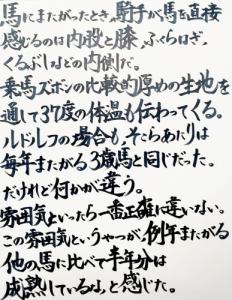 馬にまたがったとき、騎手が馬を直接
感じるのは内股と膝、ふくらはぎ、
くるぶしなどの内側だ。
乗馬ズボンの比較的厚めの生地を
通して37度の体温も伝わってくる。
ルドルフの場合も、そこらあたりは
毎年またがる3歳馬と同じだった。
だけれど何かが違う。
雰囲気といったら一番正確に違いない。
この雰囲気というやつが、例年またがる
他の馬に比べて半年分は
成熟しているな、と感じた。